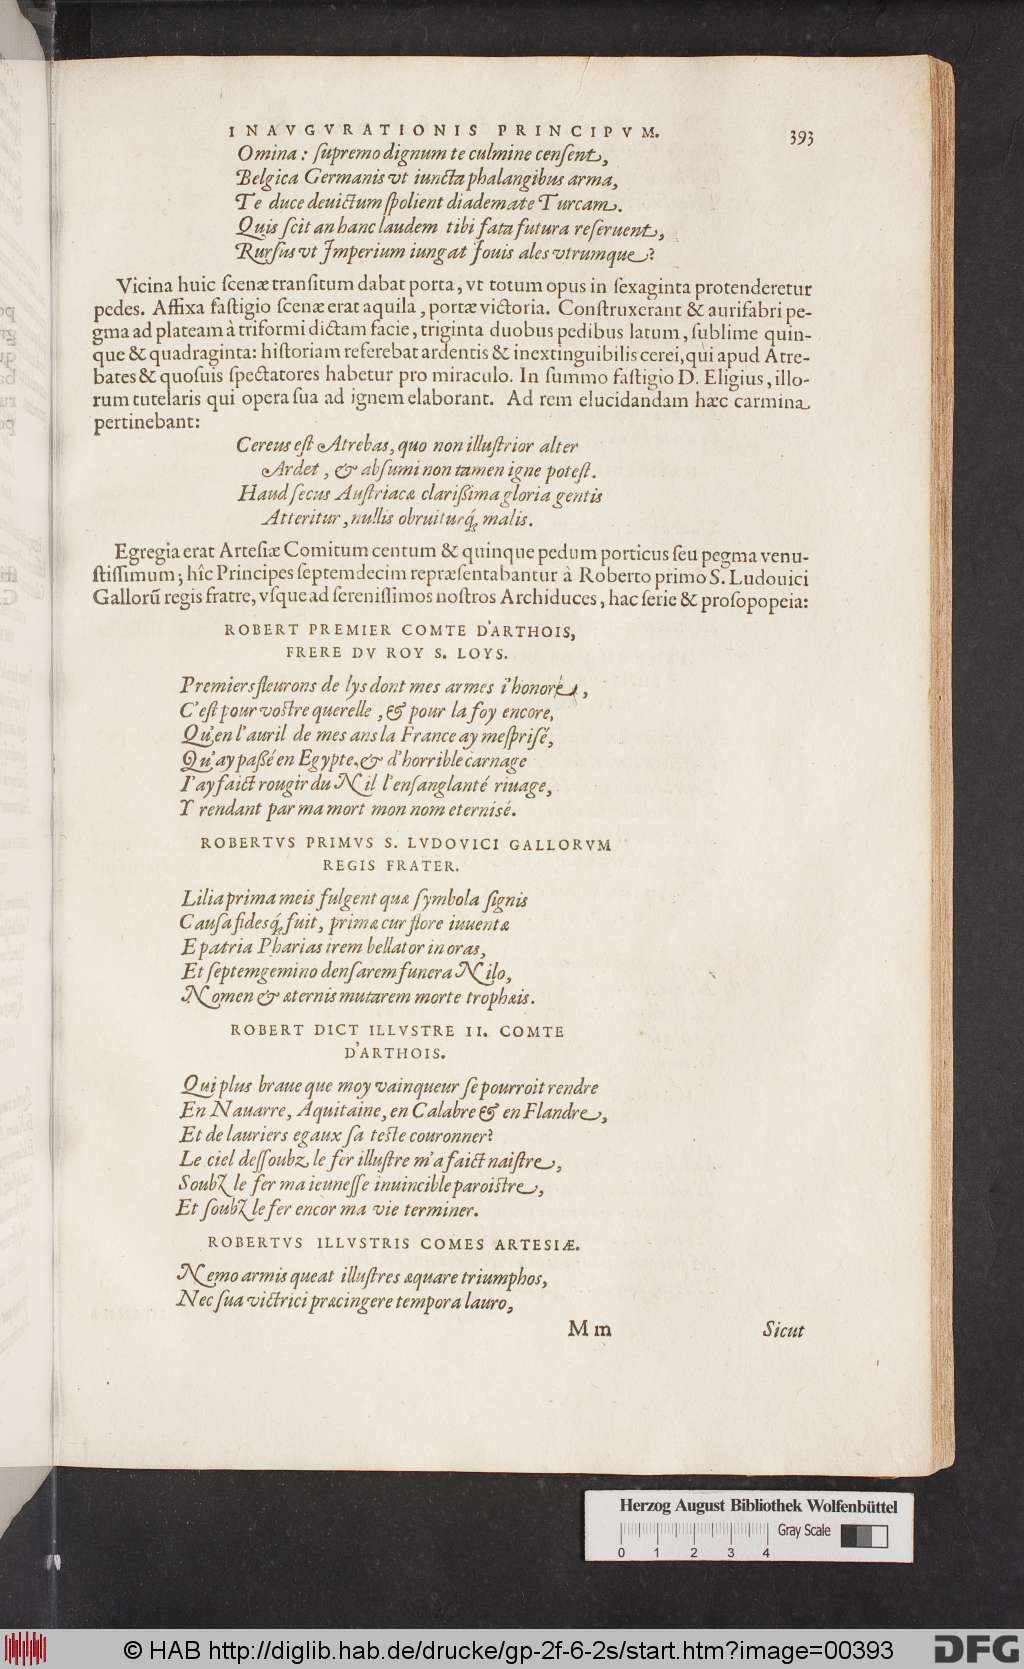 INAVGVRATIONIS PRINCIPVM. 393
Omina: ſupremo dignum te culmine cenſent,
Belgica Germanis vt iuncta phalangibus arma,
Te duce deuictum ſpolient diademate Turcam.
Quis ſcit an hanc laudem tibi fata futura reſeruent,
Rurſus vt Imperium iungat Iouis ales vtrumque?
Vicina huic ſcenæ tranſitum dabat porta, vt totum opus in ſexaginta protenderetur
pedes. Affixa faſtigio ſcenæ erat aquila, portæ victoria. Conſtruxerant & aurifabri pe-
gma ad plateam à triformi dictam facie, triginta duobus pedibus latum, ſublime quin-
que & quadraginta: hiſtoriam referebat ardentis & inextinguibilis cerei, qui apud Atre-
bates & quoſuis ſpectatores habetur pro miraculo. In ſummo faſtigio D. Eligius, illo-
rum tutelaris qui opera ſua ad ignem elaborant. Ad rem elucidandam hæc carmina
pertinebant:
Cereus eſt Atrebas, quo non illuſtrior alter
Ardet, & abſumi non tamen igne poteſt.
Haud ſecus Auſtriacæ clarißima gloria gentis
Atteritur, nullis obruiturq́; malis.
Egregia erat Arteſiæ Comitum centum & quinque pedum porticus ſeu pegma venu-
ſtiſſimum; hîc Principes ſeptemdecim repræſentabantur à Roberto primo S. Ludouici
Gallorũ regis fratre, vſque ad ſereniſſimos noſtros Archiduces, hac ſerie & proſopopeia:
ROBERT PREMIER COMTE D'ARTHOIS,
FRERE DV ROY S. LOYS.
Premiers fleurons de lys dont mes armes i'honoré,
C'eſt pour voſtre querelle, & pour la foy encore,
Qu'en l'auril de mes ans la France ay meſpriſé,
Qu'ay paßé en Egypte, & d'horrible carnage
I'ay faict rougir du Nil l'enſanglanté riuage,
Y rendant par ma mort mon nom eterniſé.
ROBERTVS PRIMVS S. LVDOVICI GALLORVM
REGIS FRATER.
Lilia prima meis fulgent quæ ſymbola ſignis
Cauſa fidesq́; fuit, primæ cur flore iuuentæ
E patria Pharias irem bellator in oras,
Et ſeptemgemino denſarem funera Nilo,
Nomen & æternis mutarem morte trophæis.
ROBERT DICT ILLVSTRE II. COMTE
D'ARTHOIS.
Qui plus braue que moy vainqueur ſe pourroit rendre
En Nauarre, Aquitaine, en Calabre & en Flandre,
Et de lauriers egaux ſa teſte couronner?
Le ciel deſſoubz le fer illuſtre m'a faict naiſtre,
Soubz le fer ma ieuneſſe inuincible paroiſtre,
Et ſoubz le fer encor ma vie terminer.
ROBERTVS ILLVSTRIS COMES ARTESIÆ.
Nemo armis queat illuſtres æquare triumphos,
Nec ſua victrici præcingere tempora lauro,
Mm Sicut
Herzog August Bibliothek Wolfenbüttel
Gray Scale
0 1 2 3 4
© HAB http://diglib.hab.de/drucke/gp-2f-6-2s/start.htm?image=00393
DFG